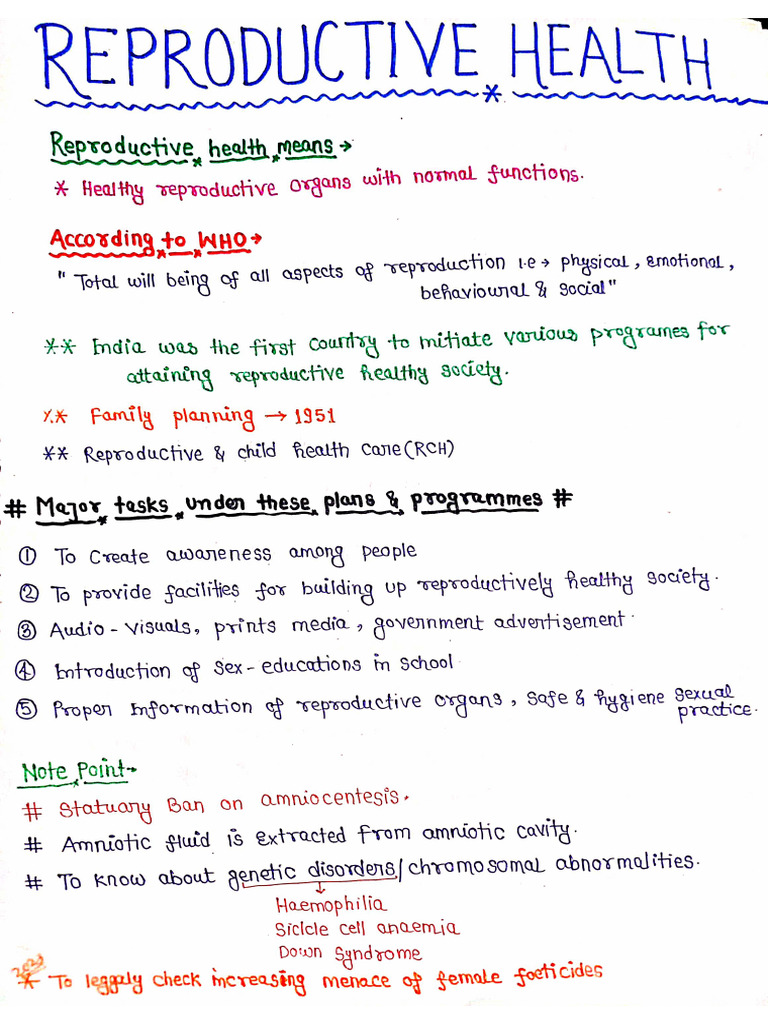 REPRODUCTIVE * HEALTH
Reproductive health means →
* Healthy reproductive organs with normal functions.
According to WHO →
" Total will being of all aspects of reproduction i.e → physical, emotional,
behavioural & social"
** India was the first country to initiate various programes for
attaining reproductive healthy society.
** Family planning → 1951
** Reproductive & child health care (RCH)
# Major tasks under these plans & programmes #
① To create awareness among people
② To provide facilities for building up reproductively healthy society.
③ Audio - visuals, prints media, government advertisement.
④ Introduction of sex-educations in school.
⑤ Proper information of reproductive organs, safe & hygiene sexual
practice.
Note Point →
# Statuary Ban on amniocentesis.
# Amniotic fluid is extracted from amniotic cavity.
# To know about genetic disorders/chromosomal abnormalities.
↓
Haemophilia
Siclcle cell anaemia
Down Syndrome
* To leggaly check increasing menace of female foeticides